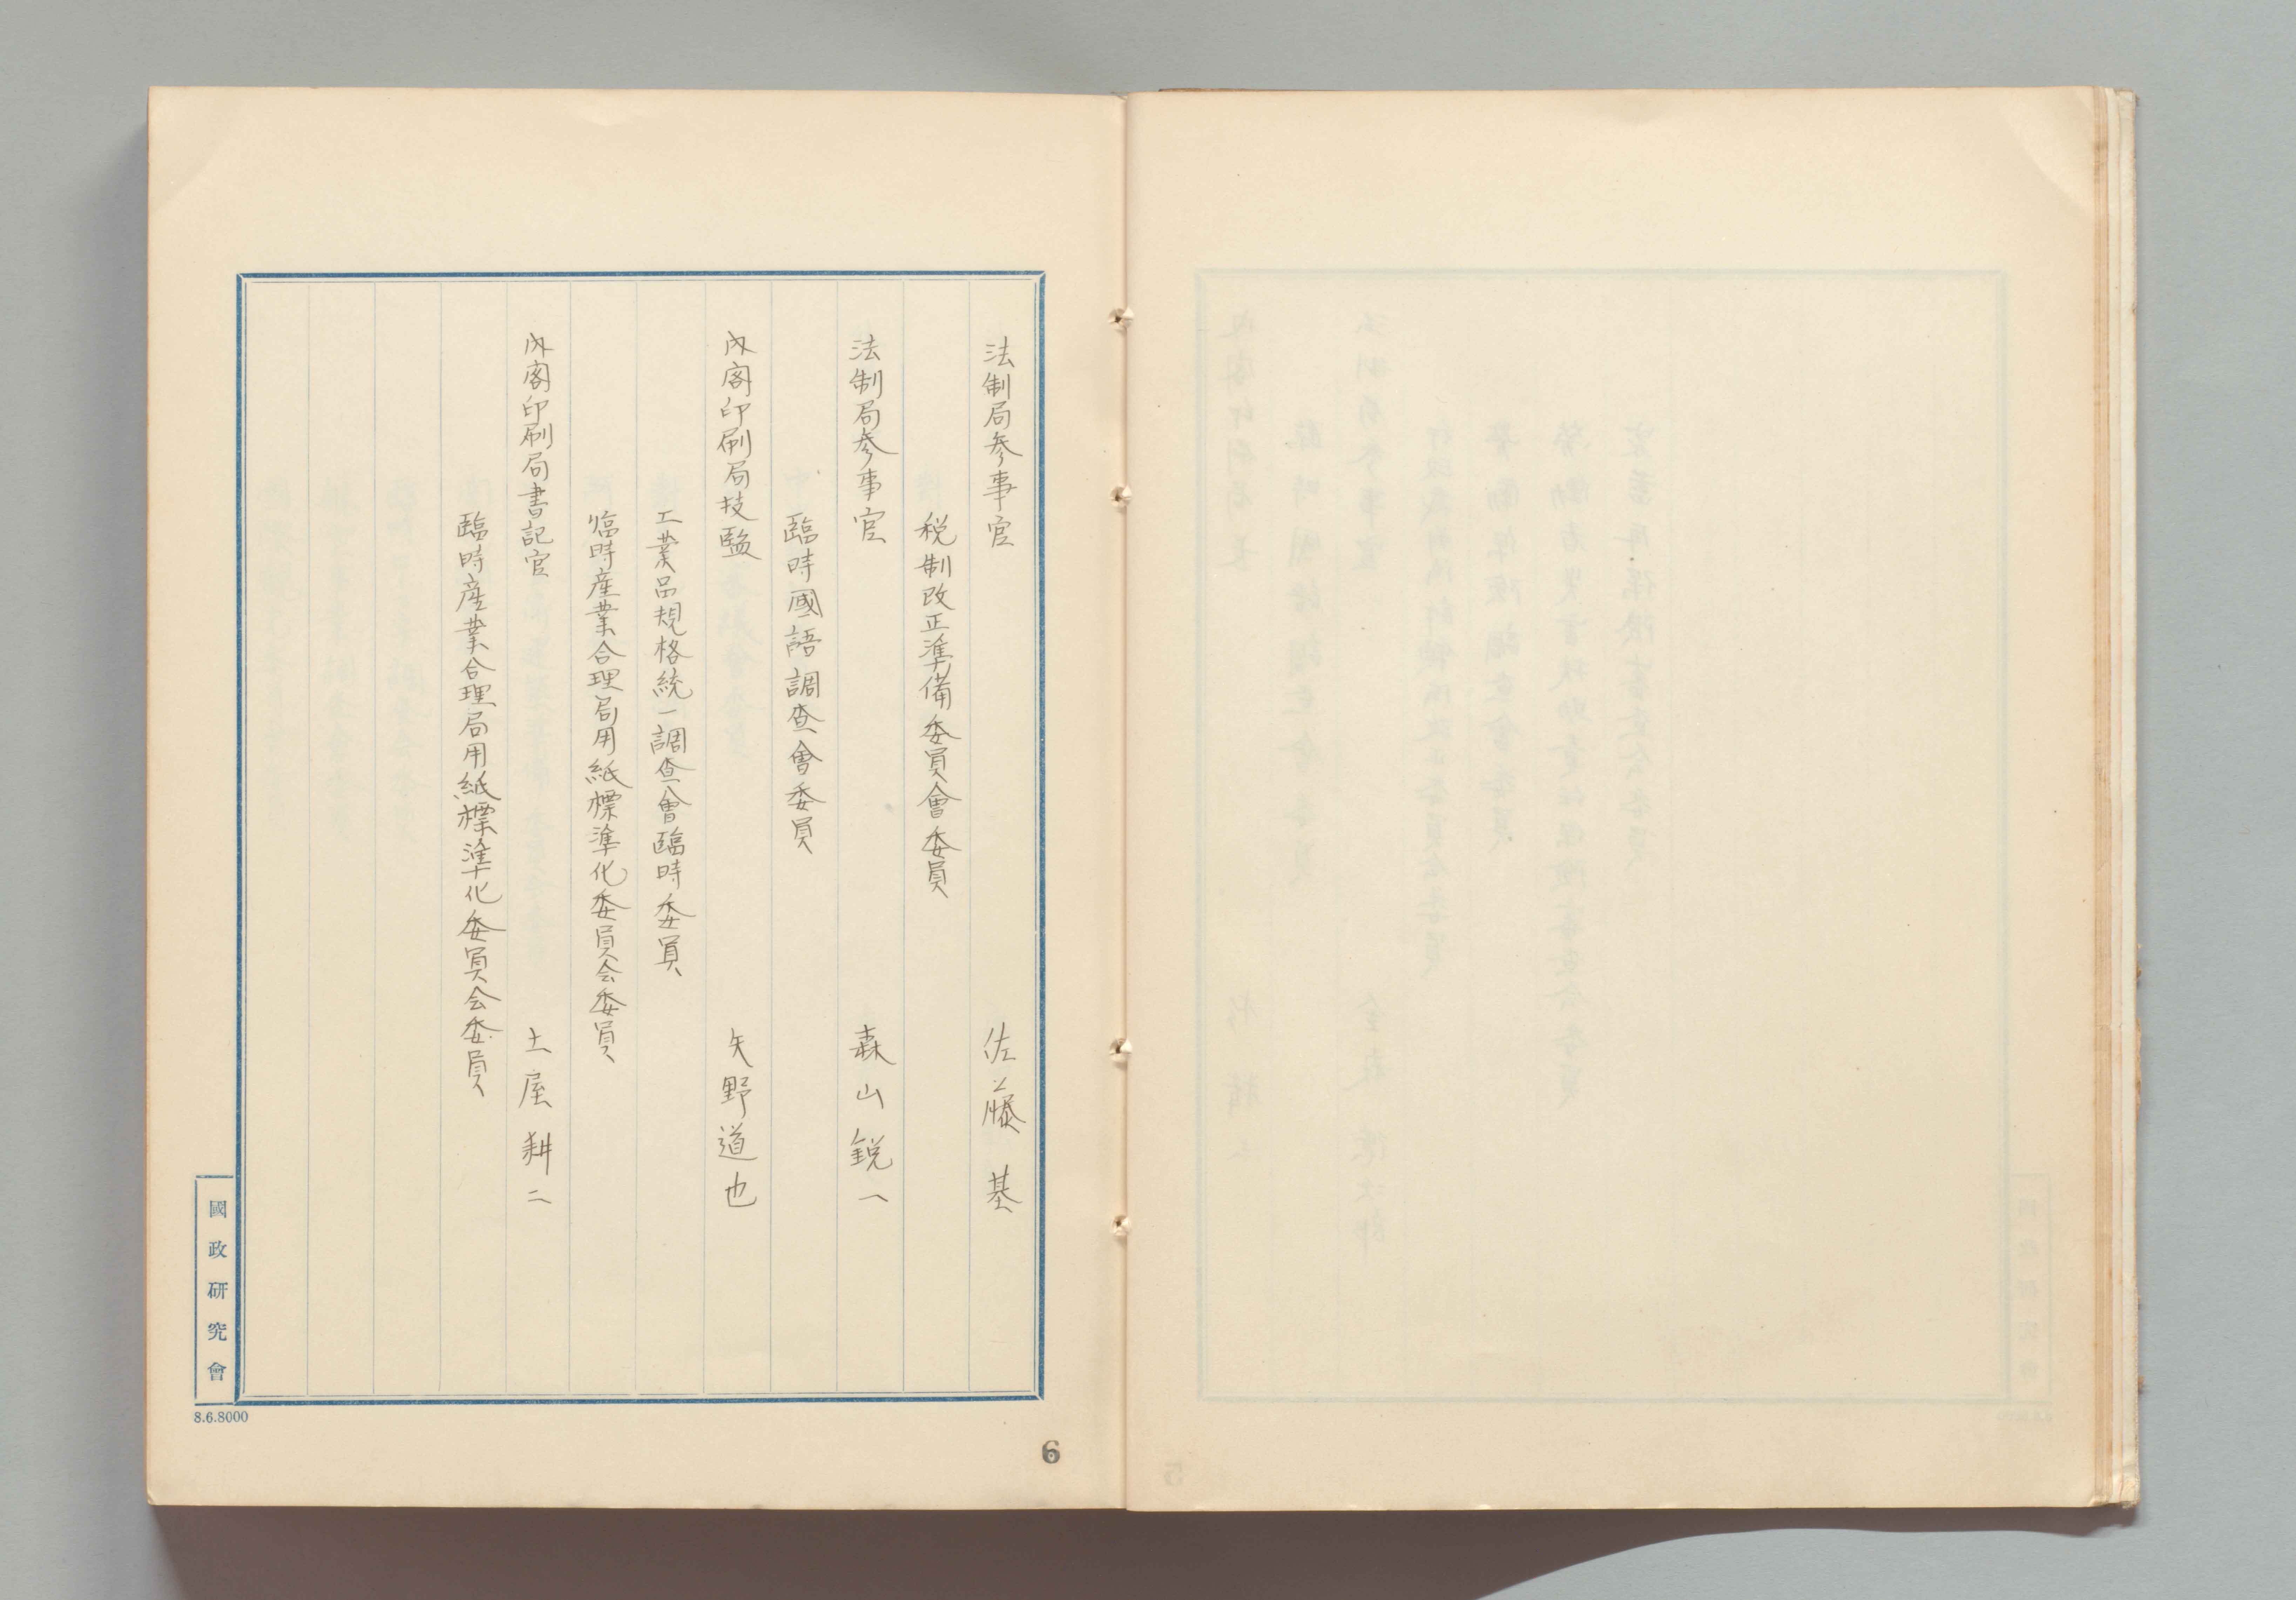 法制局参事官　佐藤基
税制改正準備委員會委員
法制局参事官　森山鋭一
臨時國語調査會委員
内閣印刷局技監　矢野道也
工業品規格統一調査會臨時委員
臨時産業合理局用紙標準化委員会委員
内閣印刷局書記官　土屋耕二
臨時産業合理局用紙標準化委員会委員
國政研究會
8.6.8000
6